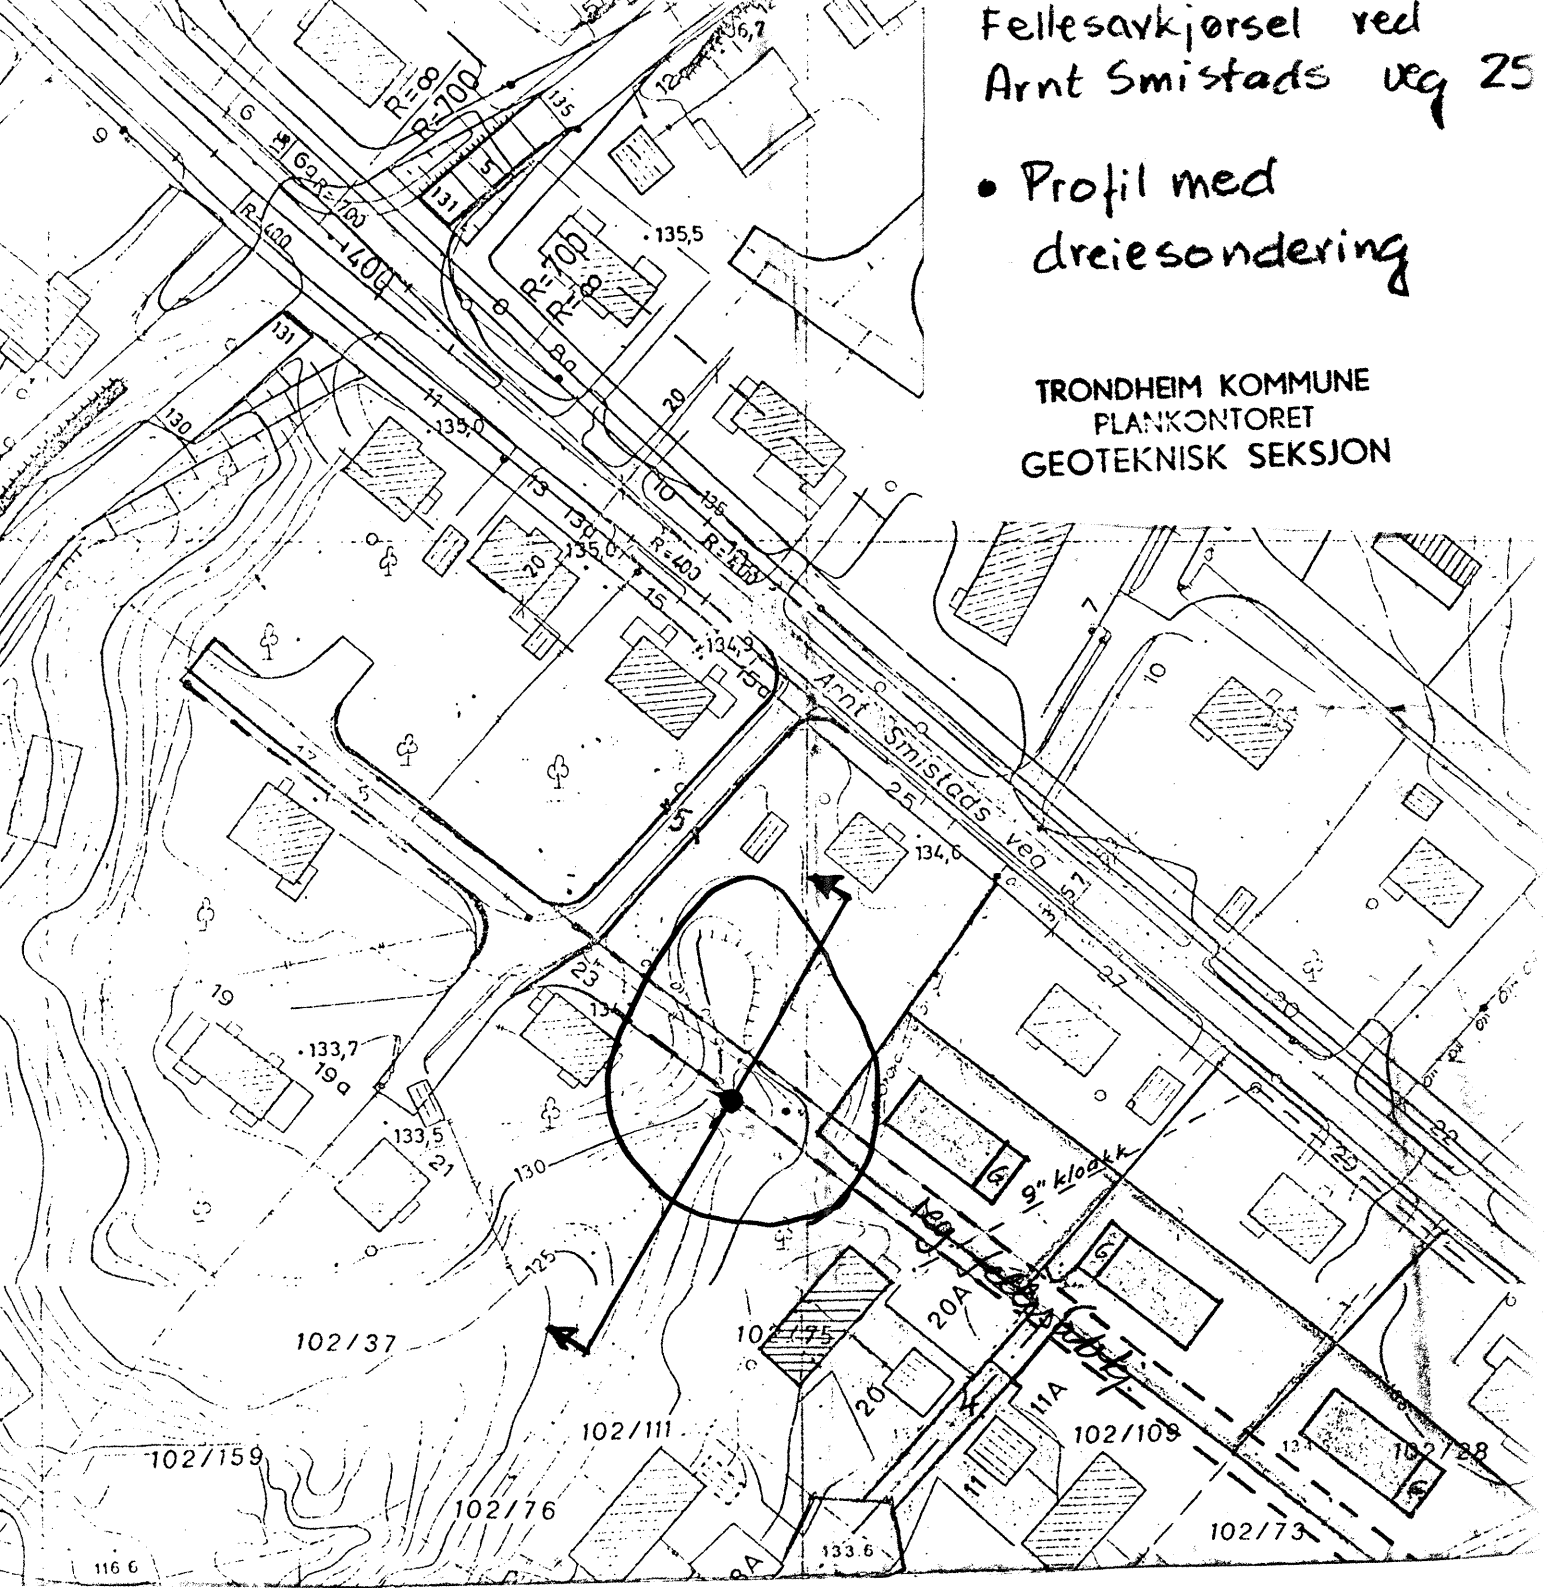 Fellesavkjørsel ved
Arnt Smistads veg 25
• Profil med
dreiesondering
TRONDHEIM KOMMUNE
PLANKONTORET
GEOTEKNISK SEKSJON
R=∞
R=700
135
5
131
6
6a
R=700
9
R=400
135,5
R=700
R=∞
8a
131
130
11
135,0
20
13
10
135
135,0
20
R=400
15
134,9
15a
7
10
Arnt Smistads veg
17
5
5
25
134,6
52
27
30
19
23
133,7
19a
133,5
21
130
125
9" kloakk
G
G
G
29
102/37
102/75
20A
20
11A
11
102/111
102/109
102/28
102/159
102/76
102/73
133.6
8A
116 6